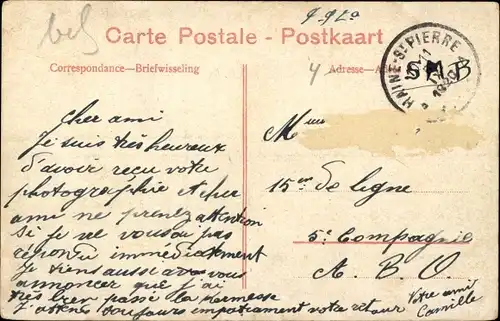 bel
Carte Postale - Postkaart
Correspondance—Briefwisseling
Adresse—
HAINE-St PIERRE
1920
S.M.B
cher ami
Je suis très heureux
d'avoir reçu votre
photographie et cher
ami ne prenez attention
si je ne vous ou pas
répondu immédiatement
Je tiens aussi a vous
annoncer que j'ai
très bien passé la kermesse
J'attens toujours impatiament votre retour
Votre ami
Camille
15em de ligne
5e Compagnie
A. B. O.